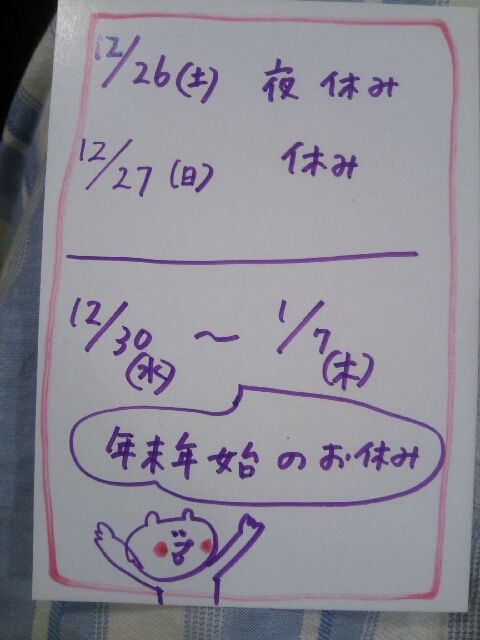 12/26(土) 夜 休み
12/27(日) 休み
12/30(水) ~ 1/7(木)
年末年始のお休み